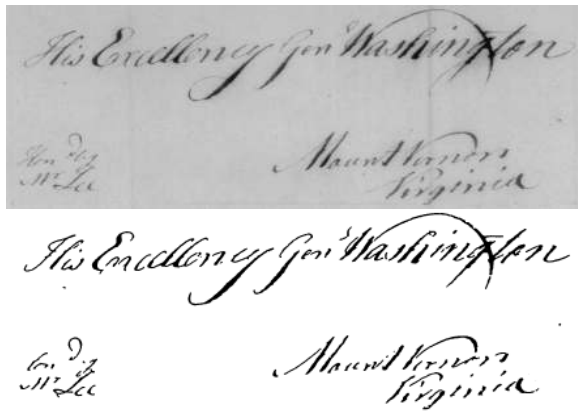 His Excellency Genl. Washington
Hon'd by
Mr Lee
Mount Vernon
Virginia
His Excellency Genl. Washington
Mr Lee
Mount Vernon
Virginia